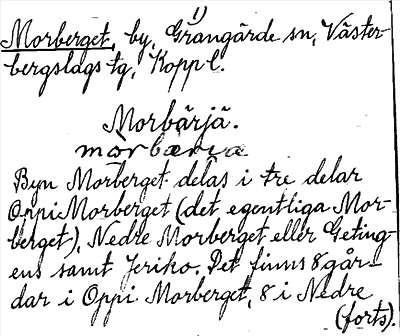 1)
Morberget, by, Grangärde sn, Väster-
bergslags tg, Kopp l.
Morbärjä.
mòrbærja
Byn Morberget delas i tre delar
Oppi Morberget (det egentliga Mor-
berget), Nedre Morberget eller Geting-
ens samt Jeriko. Det finns 8 går-
dar i Oppi Morberget, 8 i Nedre
(forts).